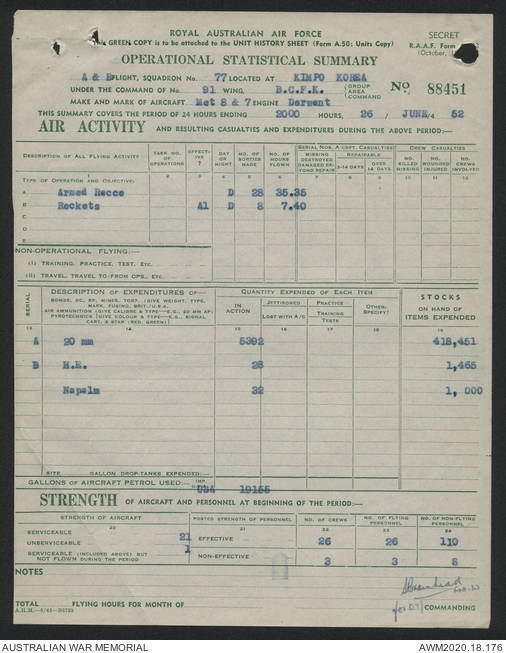 ROYAL AUSTRALIAN AIR FORCE
SECRET
GREEN COPY is to be attached to the UNIT HISTORY SHEET (Form A.50; Units Copy)
R.A.A.F. Form
(October, 
OPERATIONAL STATISTICAL SUMMARY
A & B FLIGHT, SQUADRON No. 77 LOCATED AT KIMPO KOREA
UNDER THE COMMAND OF No. 91 WING, B.C.F.K. (GROUP AREA COMMAND No 88451
MAKE AND MARK OF AIRCRAFT Met 8 & 7 ENGINE Derwent
THIS SUMMARY COVERS THE PERIOD OF 24 HOURS ENDING 2000 HOURS, 26 / JUNE / 52
AIR ACTIVITY AND RESULTING CASUALTIES AND EXPENDITURES DURING THE ABOVE PERIOD:—
DESCRIPTION OF ALL FLYING ACTIVITY
TASK NO. OF OPERATIONS
EFFECTIVE ?
DAY OR NIGHT
NO. OF SORTIES MADE
NO. OF HOURS FLOWN
SERIAL NOS A/COPY, CASUALTIES
MISSING DESTROYED DAMAGED BEYOND REPAIR
REPAIRABLE
3-14 DAYS
OVER 14 DAYS
CREW CASUALTIES
NO. KILLED MISSING
NO. WOUNDED INJURED
NO. CREWS INVOLVED
1 2 3 4 5 6 7 8 9 10 11 12
TYPE OF OPERATION AND OBJECTIVE.
A Armed Recce D 28 35.35
B Rockets A1 D 8 7.40
C
D
E
NON-OPERATIONAL FLYING:—
(I) TRAINING, PRACTICE, TEST, ETC.
(II) TRAVEL, TRAVEL TO/FROM OPS., ETC.
SERIAL
DESCRIPTION OF EXPENDITURES OF—
BOMBS, DC, RP, MINES, TORP. (GIVE WEIGHT, TYPE, MARK, FUSING, BRIT./U.S.A.
AIR AMMUNITION (GIVE CALIBRE & TYPE—E.G., 20 MM AP)
PYROTECHNICS (GIVE COLOUR & TYPE—E.G., SIGNAL CART. 2 STAR (RED, GREEN)
QUANTITY EXPENDED OF EACH ITEM
IN ACTION
JETTISONED
LOST WITH A/C
PRACTICE
TRAINING
TESTS
OTHER: SPECIFY!
STOCKS
ON HAND OF ITEMS EXPENDED
13 14 15 16 17 18 19
A 20 mm 5392 418,451
B H.E. 28 1,465
Napalm 32 1,000
SIZE GALLON DROP-TANKS EXPENDED:—
GALLONS OF AIRCRAFT PETROL USED:— IMP.
USA 19155
STRENGTH OF AIRCRAFT AND PERSONNEL AT BEGINNING OF THE PERIOD:—
STRENGTH OF AIRCRAFT
POSTED STRENGTH OF PERSONNEL
NO. OF CREWS
NO. OF FLYING PERSONNEL
NO. OF NON-FLYING PERSONNEL
20 21 22 23 24
SERVICEABLE 21 EFFECTIVE 26 26 110
UNSERVICEABLE 1
SERVICEABLE (INCLUDED ABOVE) BUT NOT FLOWN DURING THE PERIOD
NON-EFFECTIVE 3 3 8
NOTES
TOTAL FLYING HOURS FOR MONTH OF
for COMMANDING
AUSTRALIAN WAR MEMORIAL
AWM2020.18.176